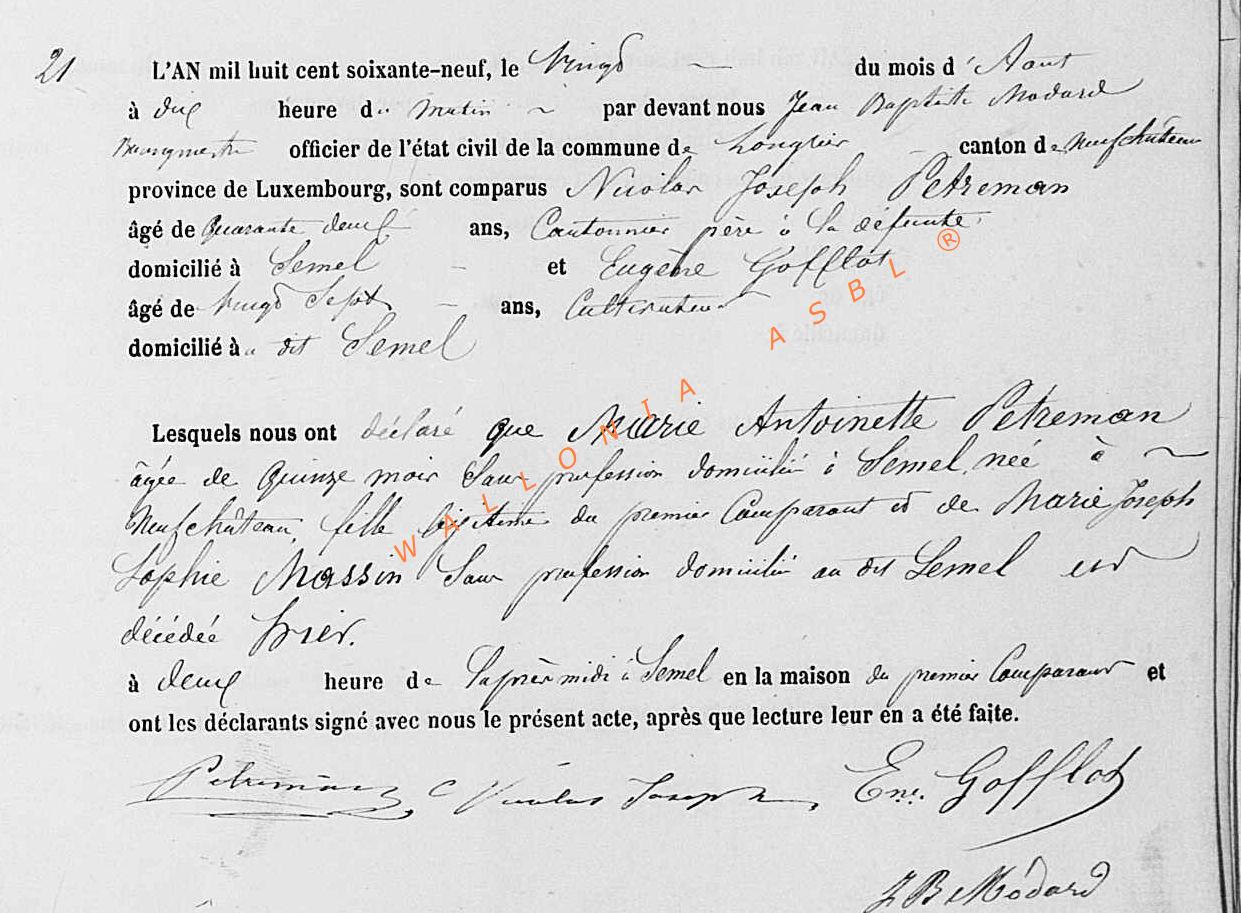 21 L'AN mil huit cent soixante-neuf, le Vingt du mois d'Aout
à dix heure du Matin par devant nous Jean Baptiste Modard
Bourgmestre officier de l'état civil de la commune de Longlier canton de Neufchâteau
province de Luxembourg, sont comparus Nicolas Joseph Petreman
âgé de Quarante deux ans, Cantonnier père à la défunte
domicilié à Semel et Eugène Gofflot
âgé de Vingt Sept ans, Cultivateur
domicilié à dit Semel
Lesquels nous ont déclaré que Marie Antoinette Petreman
âgée de Quinze mois Sans profession domiciliée à Semel, née à
Neufchâteau, fille légitime du premier Comparant et de Marie Joseph
Sophie Massin Sans profession domiciliée au dit Semel est
décédée hier.
à deux heure de l'après midi à Semel en la maison du premier Comparant et
ont les déclarants signé avec nous le présent acte, après que lecture leur en a été faite.
Petreman Nicolas Joseph Ene. Gofflot
J B Modard
WALLONIA ASBL ®